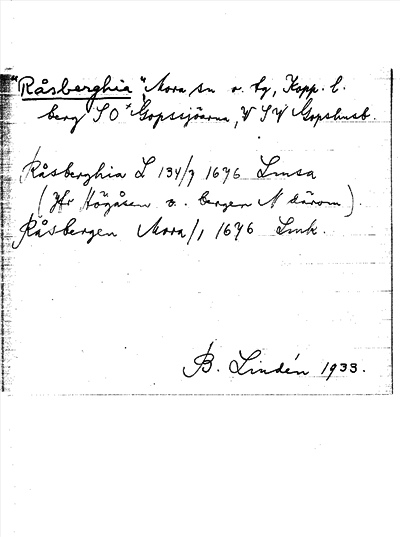 "Råsberghia", Mora sn o. tg, Kopp. l.
berg SO Gopssjöarna, V SV Gopshusb.
Råsberghia L 134/7 1676 Lmsa
(Jfr Högåsen o. bergen N därom).
Råsbergen Mora/1 1676 Lmk.
B. Lindén 1933.